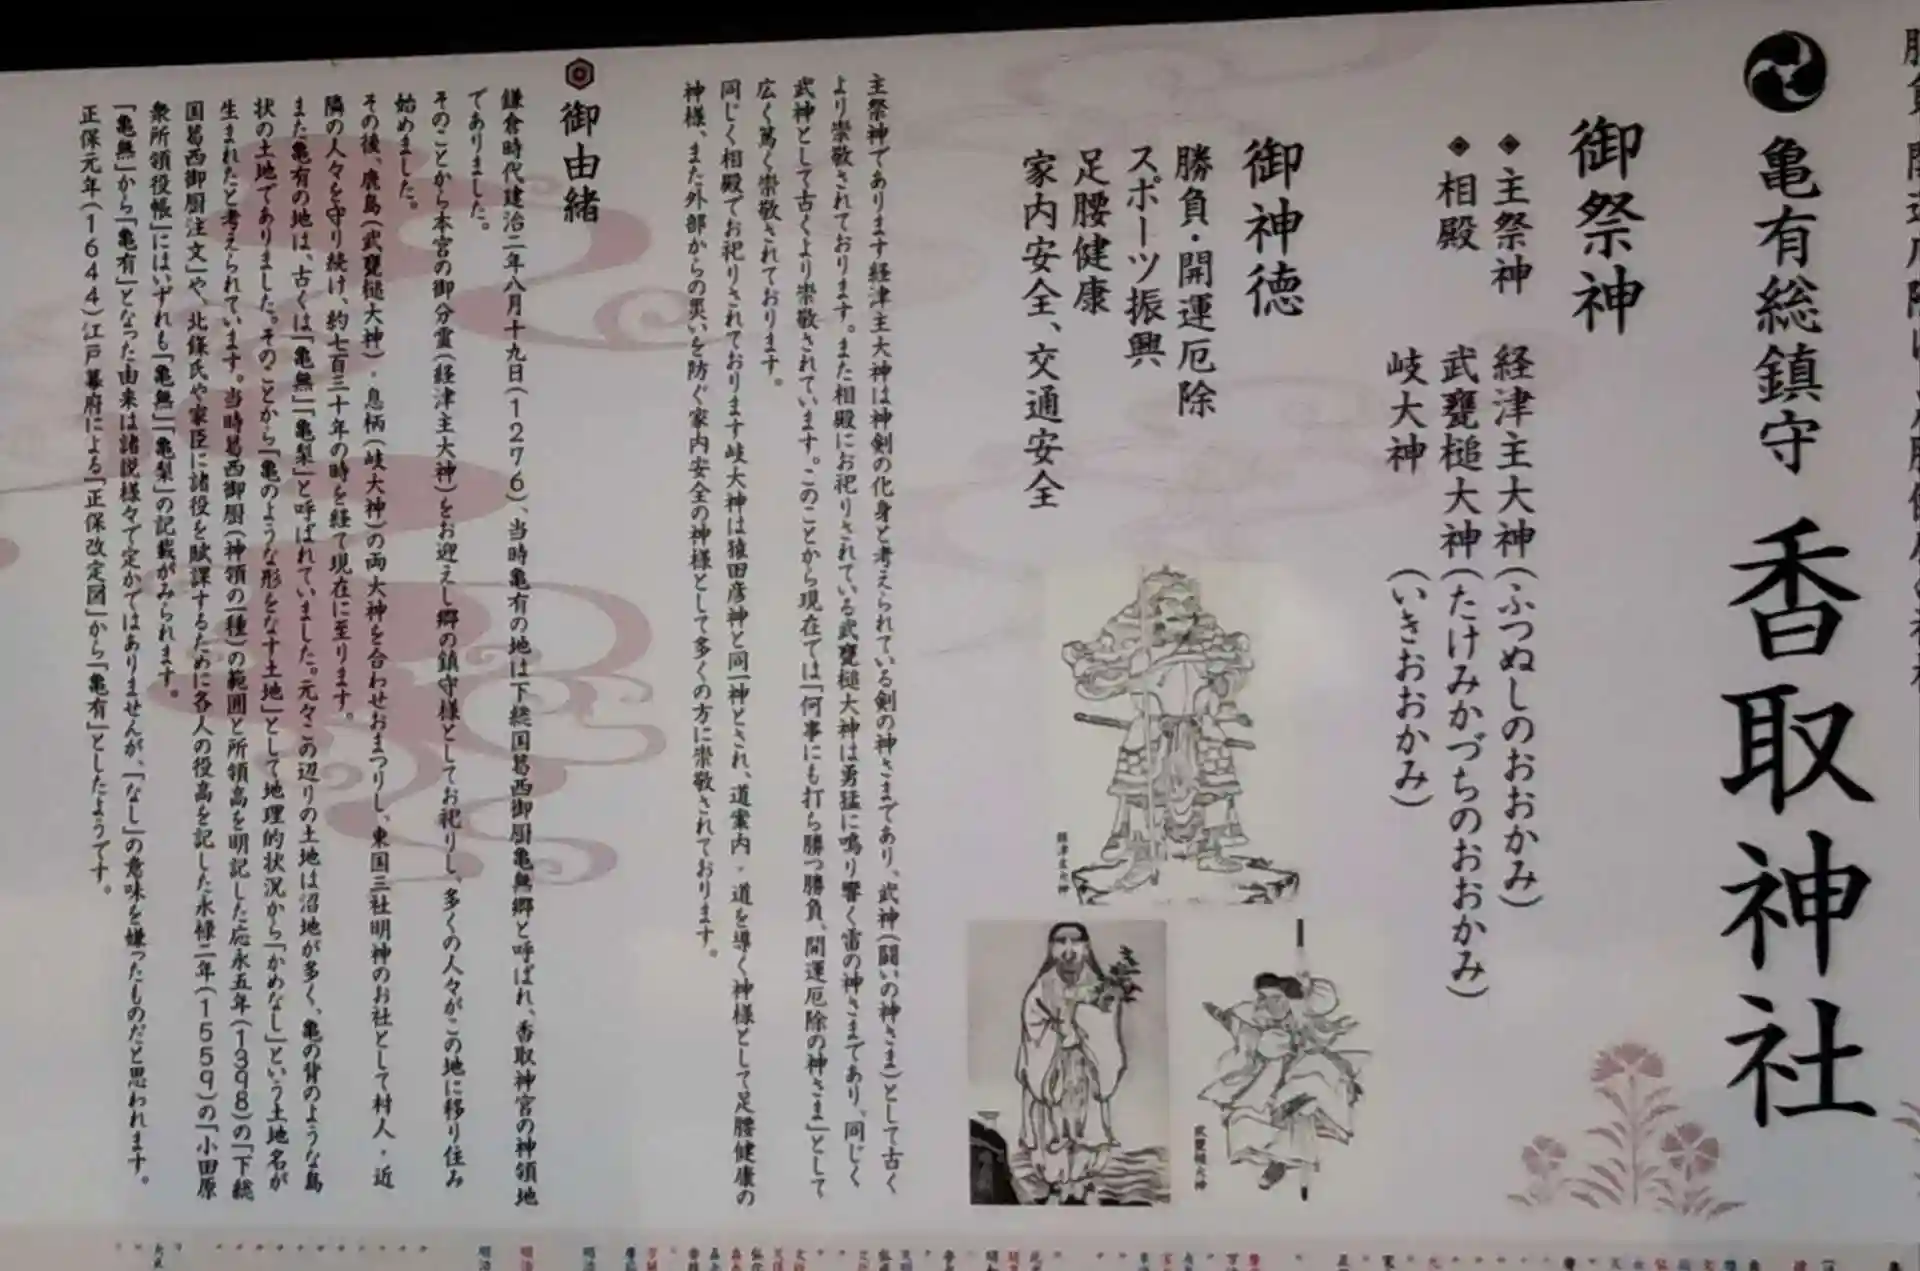 亀有総鎮守 香取神社
御祭神
主祭神 経津主大神(ふつぬしのおおかみ)
相殿 武甕槌大神(たけみかづちのおおかみ)
岐大神(いきおおかみ)
御神徳
勝負・開運厄除
スポーツ振興
足腰健康
家内安全、交通安全
主祭神であります経津主大神は神剣の化身と考えられている剣の神さまであり、武神(闘いの神さま)として古く
より崇敬されております。また相殿にお祀りされている武甕槌大神は勇猛に鳴り響く雷の神さまであり、同じく
武神として古くより崇敬されています。このことから現在では「何事にも打ち勝つ勝負、開運厄除の神さま」として
広く篤く崇敬されております。
同じく相殿でお祀りされております岐大神は猿田彦神と同一神とされ、道案内・道を導く神様として足腰健康の
神様、また外部からの災いを防ぐ家内安全の神様として多くの方に崇敬されております。
御由緒
鎌倉時代建治二年八月十九日(1276)、当時亀有の地は下総国葛西御厨亀無郷と呼ばれ、香取神宮の神領地
でありました。
そのことから本宮の御分霊(経津主大神)をお迎えし郷の鎮守様としてお祀りし、多くの人々がこの地に移り住み
始めました。
その後、鹿島(武甕槌大神)・息栖(岐大神)の両大神を合わせおまつりし、東国三社明神のお社として村人・近
隣の人々を守り続け、約七百三十年の時を経て現在に至ります。
また亀有の地は、古くは「亀無」「亀梨」と呼ばれていました。元々この辺りの土地は沼地が多く、亀の背のような島
状の土地でありました。そのことから「亀のような形をなす土地」として地理的状況から「かめなし」という土地名が
生まれたと考えられています。当時葛西御厨(神領の一種)の範囲と所領高を明記した応永五年(1398)の「下総
国葛西御厨注文」や、北條氏や家臣に諸役を賦課するために各人の役高を記した永禄二年(1559)の「小田原
衆所領役帳」にはいずれも「亀無」「亀梨」の記載がみられます。
「亀無」から「亀有」となった由来は諸説様々で定かではありませんが、「なし」の意味を嫌ったものだと思われます。
正保元年(1644)江戸幕府による「正保改定図」から「亀有」としたようです。
経津主大神
武甕槌大神